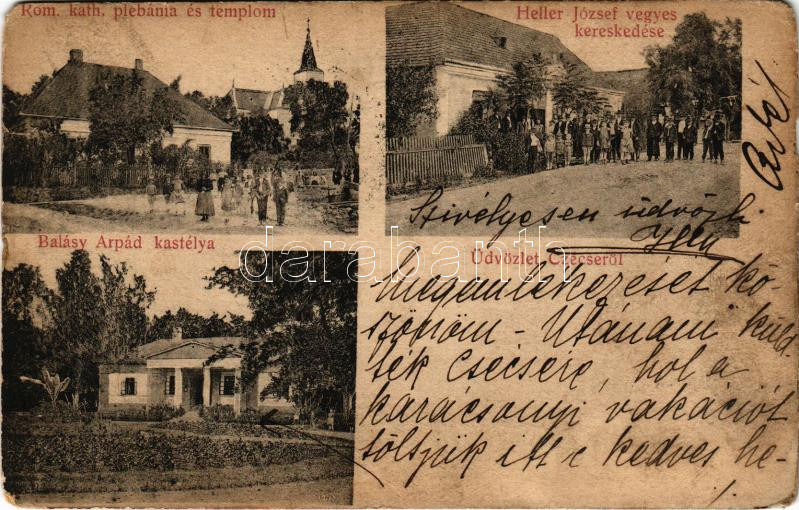 Róm. kath. plebánia és templom
Heller József vegyes
kereskedése
Balásy Arpád kastélya
Üdvözlet Csécseről
darabanth
Szivélyesen üdvözli
Megemlékezését kö-
szönöm - Utánam küld-
ték Csécsére, hol a
karácsonyi vakációt
töltjük itt e kedves he-